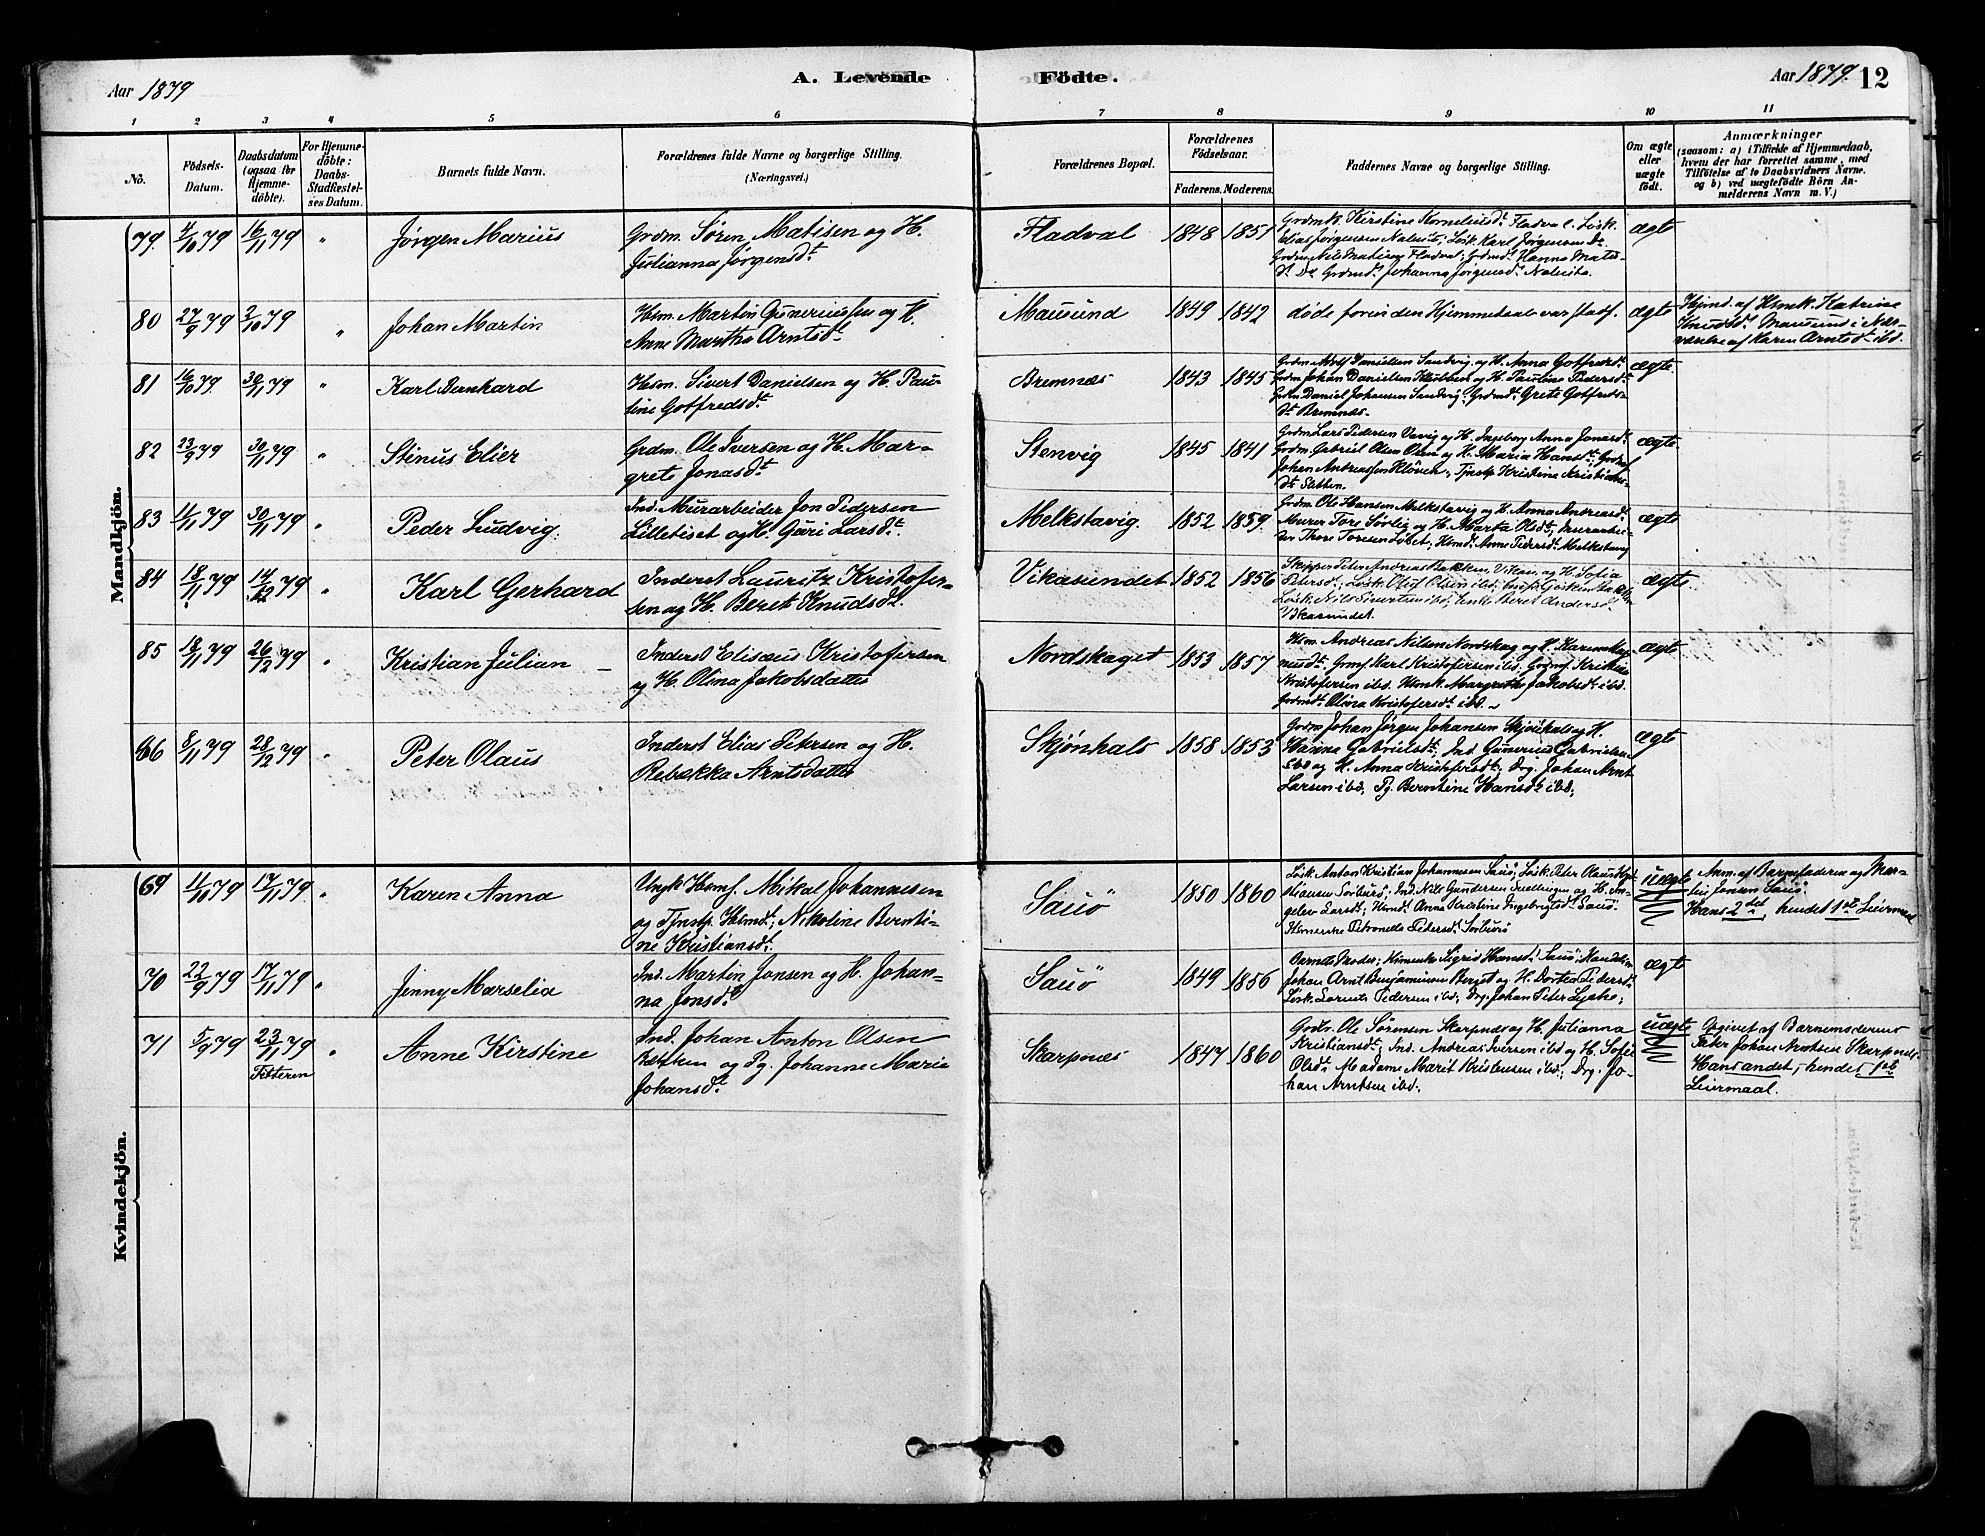 Aar 1879
A. Levende
Födte.
Aar 1879. 12
1 2 3 4 5 6 7 8 9 10 11
No.
Födsels-
Datum.
Daabsdatum
(ogsaa for
Hjemme-
döbte).
For Hjemme-
döbte:
Daabs-
Stadfæstel-
ses Datum.
Barnets fulde Navn.
Forældrenes fulde Navne og borgerlige Stilling.
(Næringsvei.)
Forældrenes Bopæl.
Forældrenes
Födselsaar.
Faderens. Moderens.
Faddernes Navne og borgerlige Stilling.
Om ægte
eller
uægte
født.
Anmærkninger
(saasom: a) i Tilfælde af Hjemmedaab,
hvem der har forrettet samme, med
Tilföielse af to Daabsvidners Navne.
og b) ved uægtefödte Börn An-
melderens Navn m. V.)
Mandkjön.
79 4/10 79 16/11 79 " Jørgen Marius
Grdm. Søren Matisen og H.
Julianna Jørgensdt.
Fladval 1848 1851
Grdmk. Kirstine Kornelius dt. Fladval. Løsk.
Elias Jørgensen ; Løsk. Karl Jørgensen Do
Grdm Nils Fladval; Grdmd. Hanna Mates-
dt. Do Grdmd. Johanna Jørgensdt.
ægte
80 27/9 79 2/10 79 " Johan Martin
Hsm. Martin Guneriussen og H.
Anne Martha Arntsdt.
Mausund 1849 1842
døde forinden Hjemmedaab var stadf.
ægte
Hjmd. af Hsmk. Katrine
Knudsdt. Mausund i Nær-
værelse af Karen Arntsdt. ibd.
81 16/10 79. 30/11 79 " Karl Bernhard
Hsm. Sivert Danielsen og H. Pau-
line Gotfredsdt.
Bremnæs 1843 1845
Grdm. Adolf Danielsen Sandvig og H. Anna Gotfredsdt.
Grdm. Johan Danielsen og H. Pauline Pedersdt.
Grdm. Daniel Johansen Sandvig; Grdmd. Grete Gotfreds-
dt. Bremnæs.
ægte.
82 23/9 79 30/11 79 " Stinus Elier
Grdm. Ole Iversen og H. Mar-
grete Jonasdt.
Stenvig 1845 1841
Grdm. Lars Pedersen Vavig og H. Ingeborg Anna Jonasdt.
Grdm. Gabriel Olsen Ø og H. Maria Hansdt.; Grdm.
Johan Andreassen Kløven; Tjnstp. Kristine Kristians-
dt. Sletten.
ægte
83 11/11 79 30/11 79 " Peder Ludvig.
Ind. Murarbeider Jon Pedersen
Lilletiset og H. Guri Larsdt.
Melkstavig. 1852 1859.
Grdm. Ole Hansen Melkstavig og H. Anna Andreasdt.
Murer Tore Sørlig og H. Marta Olsdt.; Murarbei-
der Thore Toresen ; Hsmd. Anne Pedersdt. Melkstavig
ægte
84 18/11 79 14/12 79 " Karl Gerhard
Inderst Lauritz Kristofer-
sen og H. Beret Knudsdt.
Vikasundet 1852 1856
Skipper Peter Andreas Bakken, Vikan, og H. Sofia
Petersdt.; Løsk. Olof Olsen ibd;
Løsk. Nils Sivertsen ibd; Enke Beret Andersdt.
Vikasundet.
ægte.
85 18/11 79 26/12 79 " Kristian Julian
Inderst Elisæus Kristofersen
og H. Olina Jakobsdatter
Nordskaget 1853 1857
Hsm. Andreas Nilsen Nordskag og H. Karen
dt. Grmf. Karl Kristofersen ibd. Grdmf.
Kristofersen ibd. Hsmk. Margrethe Jakobsdt. ibd.
Grdmd. Olina Kristofersdt. ibd.
ægte
86 8/11 79 28/12 79 " Peter Olaus
Inderst Elias Petersen og H.
Rebekka Arntsdatter
Skjønhals 1858 1853
Grdm Johan Jørgen Johansen Skjønhals og H.
Hanna Gabrielsdt.; Ind. Gunerius Gabrielsen
ibd og H. Anna Kristofersdt; Drg. Johan Arnt
Larsen ibd; Pg. Berntine Hansdt. ibd;
ægte
Kvindekjön.
69 11/10 79 17/11 79 " Karen Anna
Ungk. Hsmf. Mikal Johannesen
og Tjnstp. Hsmdt. Nikoline Bernti-
ne Kristiansdt.
Sauø 1850 1860
Løsk. Anton Kristian Johannesen Sauø; Løsk. Peter Olaus Kri-
stiansen Sørburø; Ind. Nils Gundersen og H. In-
geler Larsdt; Hsmd. Anna Kristine Ingebrigtsdt. Sauø
Petronella Pedersdt. Sørburø
uægte
Anm. af Barnefaderen og Mar-
tin Jonsen Sauø.
Hans 2det, hendes 1ste Leiermaal
70 22/9 79 17/11 79 " Jenny Marselia
Ind. Martin Jonsen og H. Johan-
na Jonsdt.
Sauø 1849 1856
Barnets Moder; Sigrid Hansdt. Sauø; Handelsm.
Johan Arnt Benjaminsen Berget og H. Dortea Pedersdt.
Løsk. Pedersen ibd; Drg. Johan Peter ;
ægte
71 5/9 79 23/11 79 " Anne Kirstine
Titteren
Ind. Johan Anton Olsen
og Pg. Johanne Marie
Johansdt.
Skarpnæs 1847 1860
Grdm. Ole Sørensen Skarpnæs og H. Julianna
Kristiansdt.; Ind. Andreas Iversen ibd og H. Sofie
Olsdt.; Madame Maret Kristensen ibd; Drg. Jo-
han Arntsen ibd;
uægte
Opgivet af Barnemoderens
Johan Skarpnæs.
Hans andet, hendes 1ste
Leiermaal.